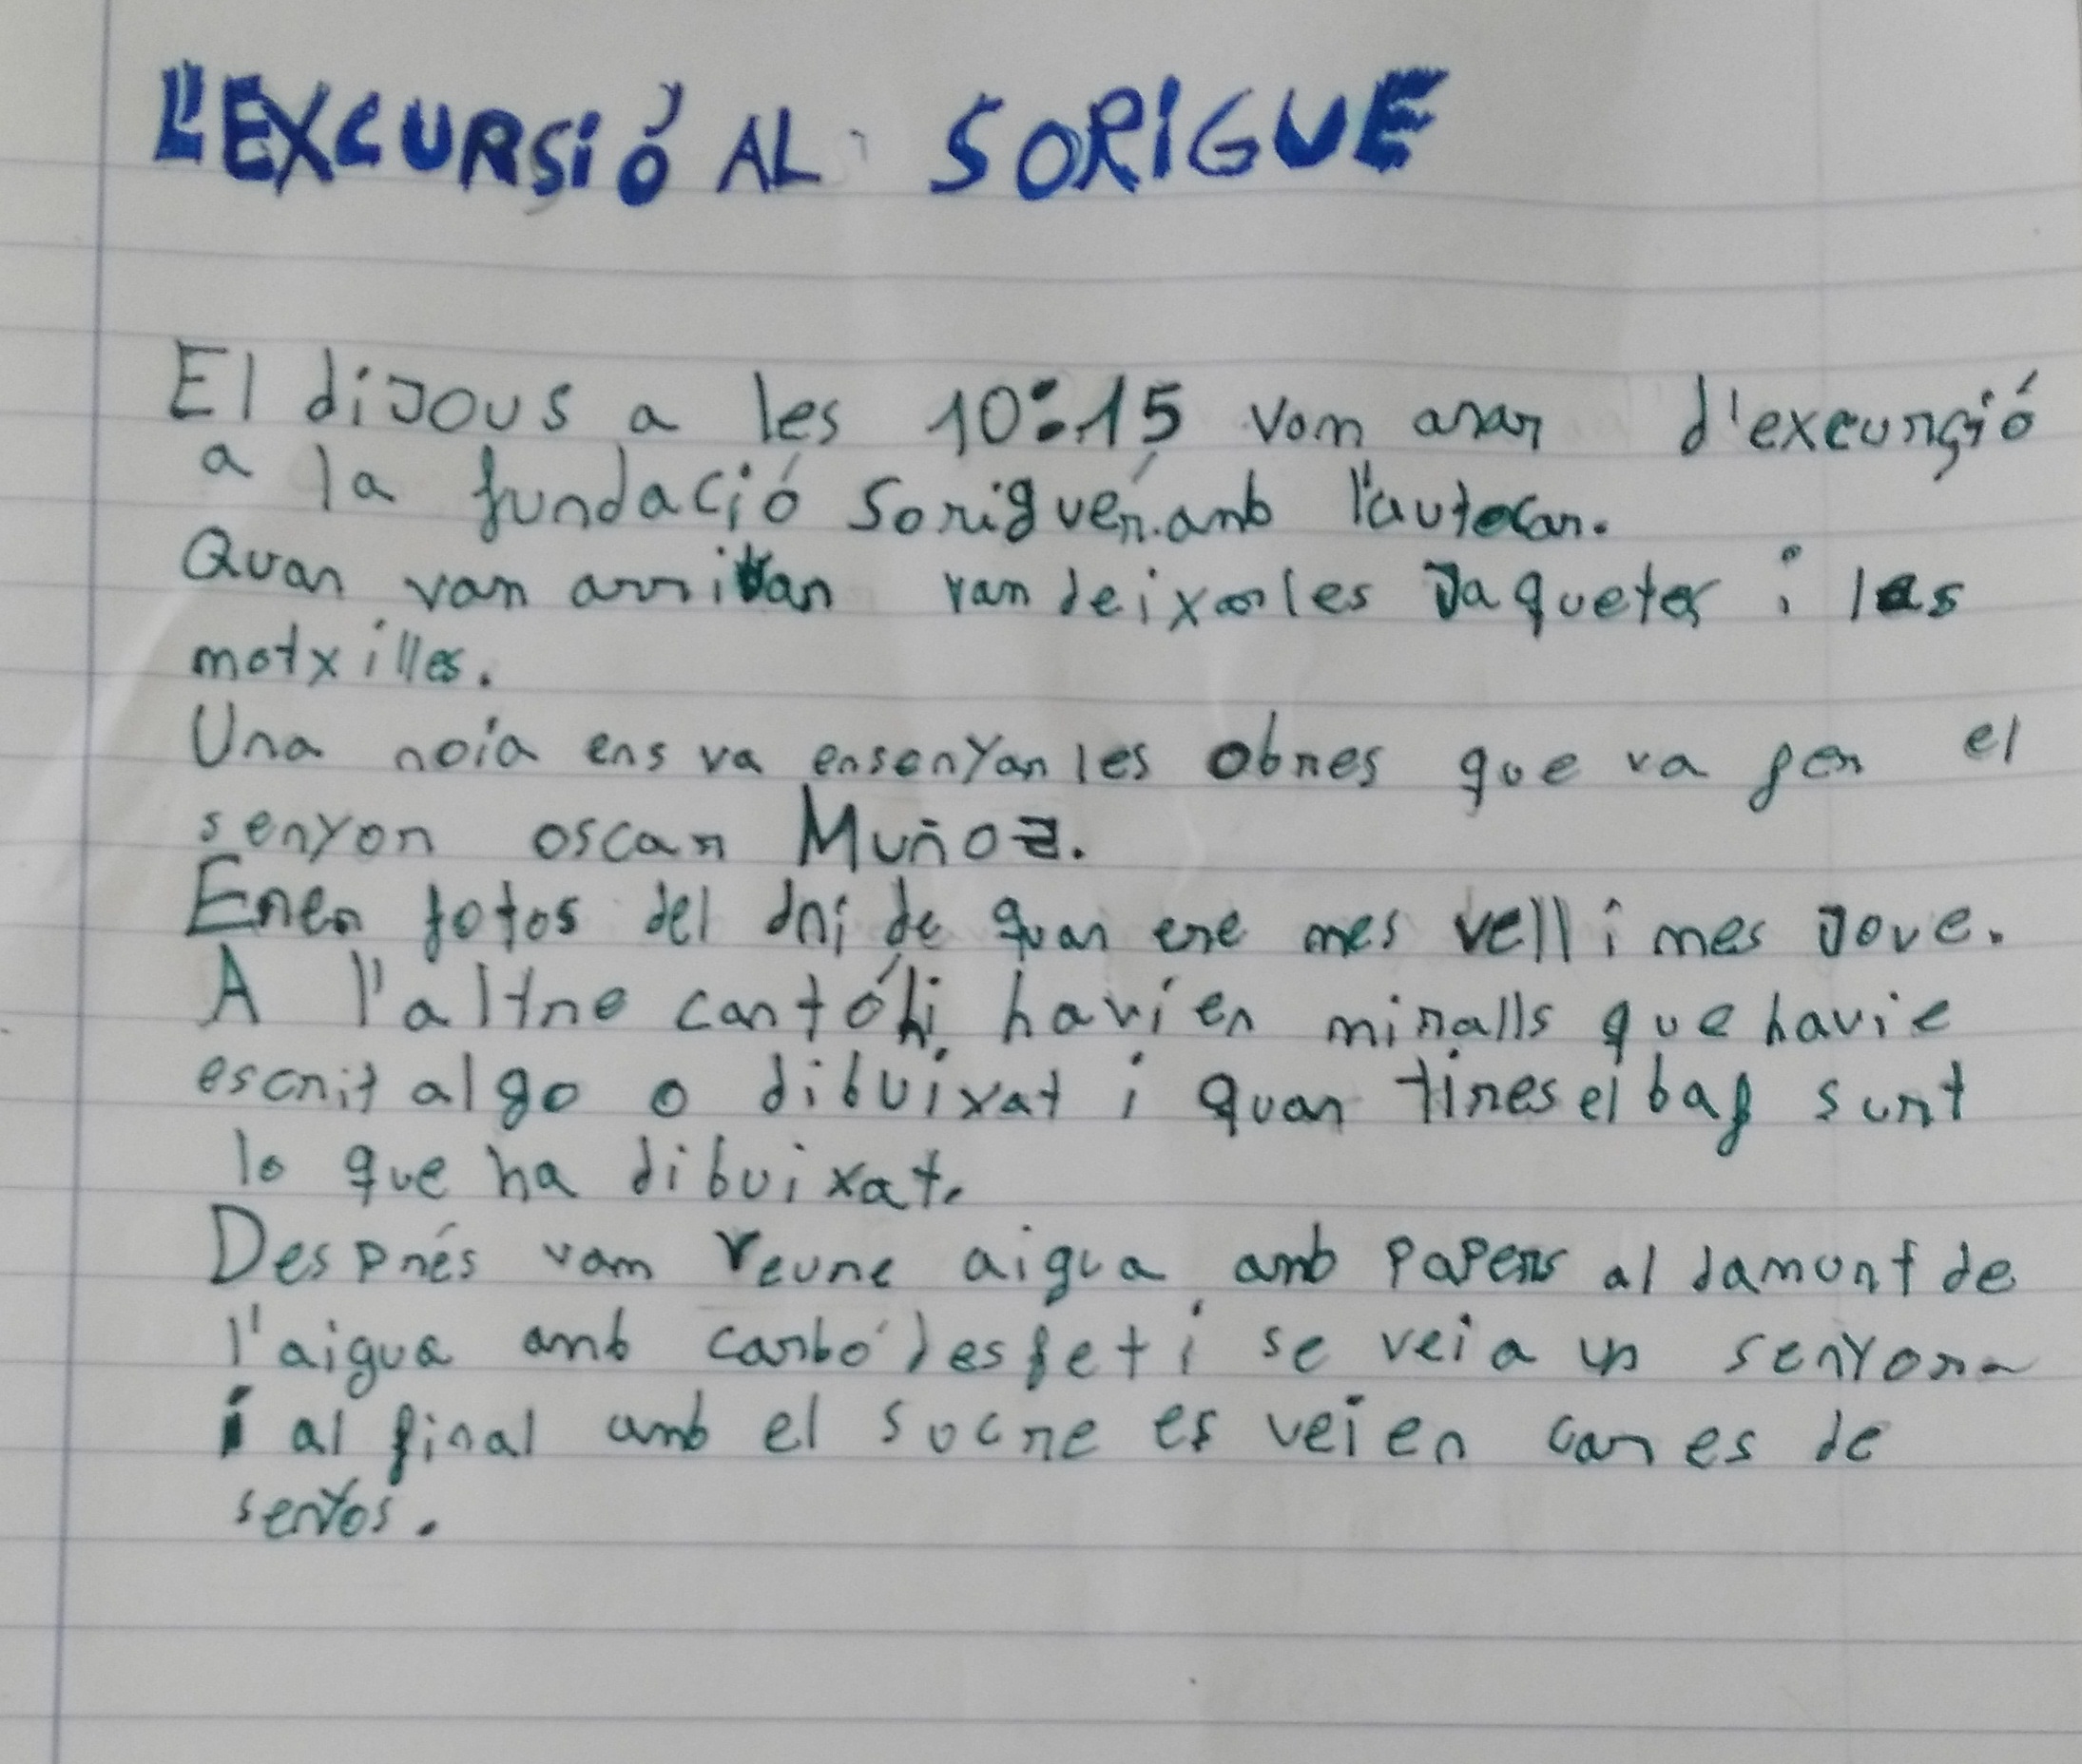 L'EXCURSIÓ AL SORIGUE
El dijous a les 10:15 vam anar d'excursió
a la fundació Soriguér amb l'autocar.
Quan vam arribar vam deixar les jaquetes i les
motxilles.
Una noia ens va ensenyar les obres que va fer el
senyor oscar Muñoz.
Eren fotos del dni de quan ere mes vell i mes jove.
A l'altre cantó hi havíen miralls que havie
escrit algo o dibuixat i quan tires el baf surt
lo que ha dibuixat.
Després vam veure aigua amb papers al damunt de
l'aigua amb carbó desfet i se veia un senyora
i al final amb el sucre es veien cares de
senyos.